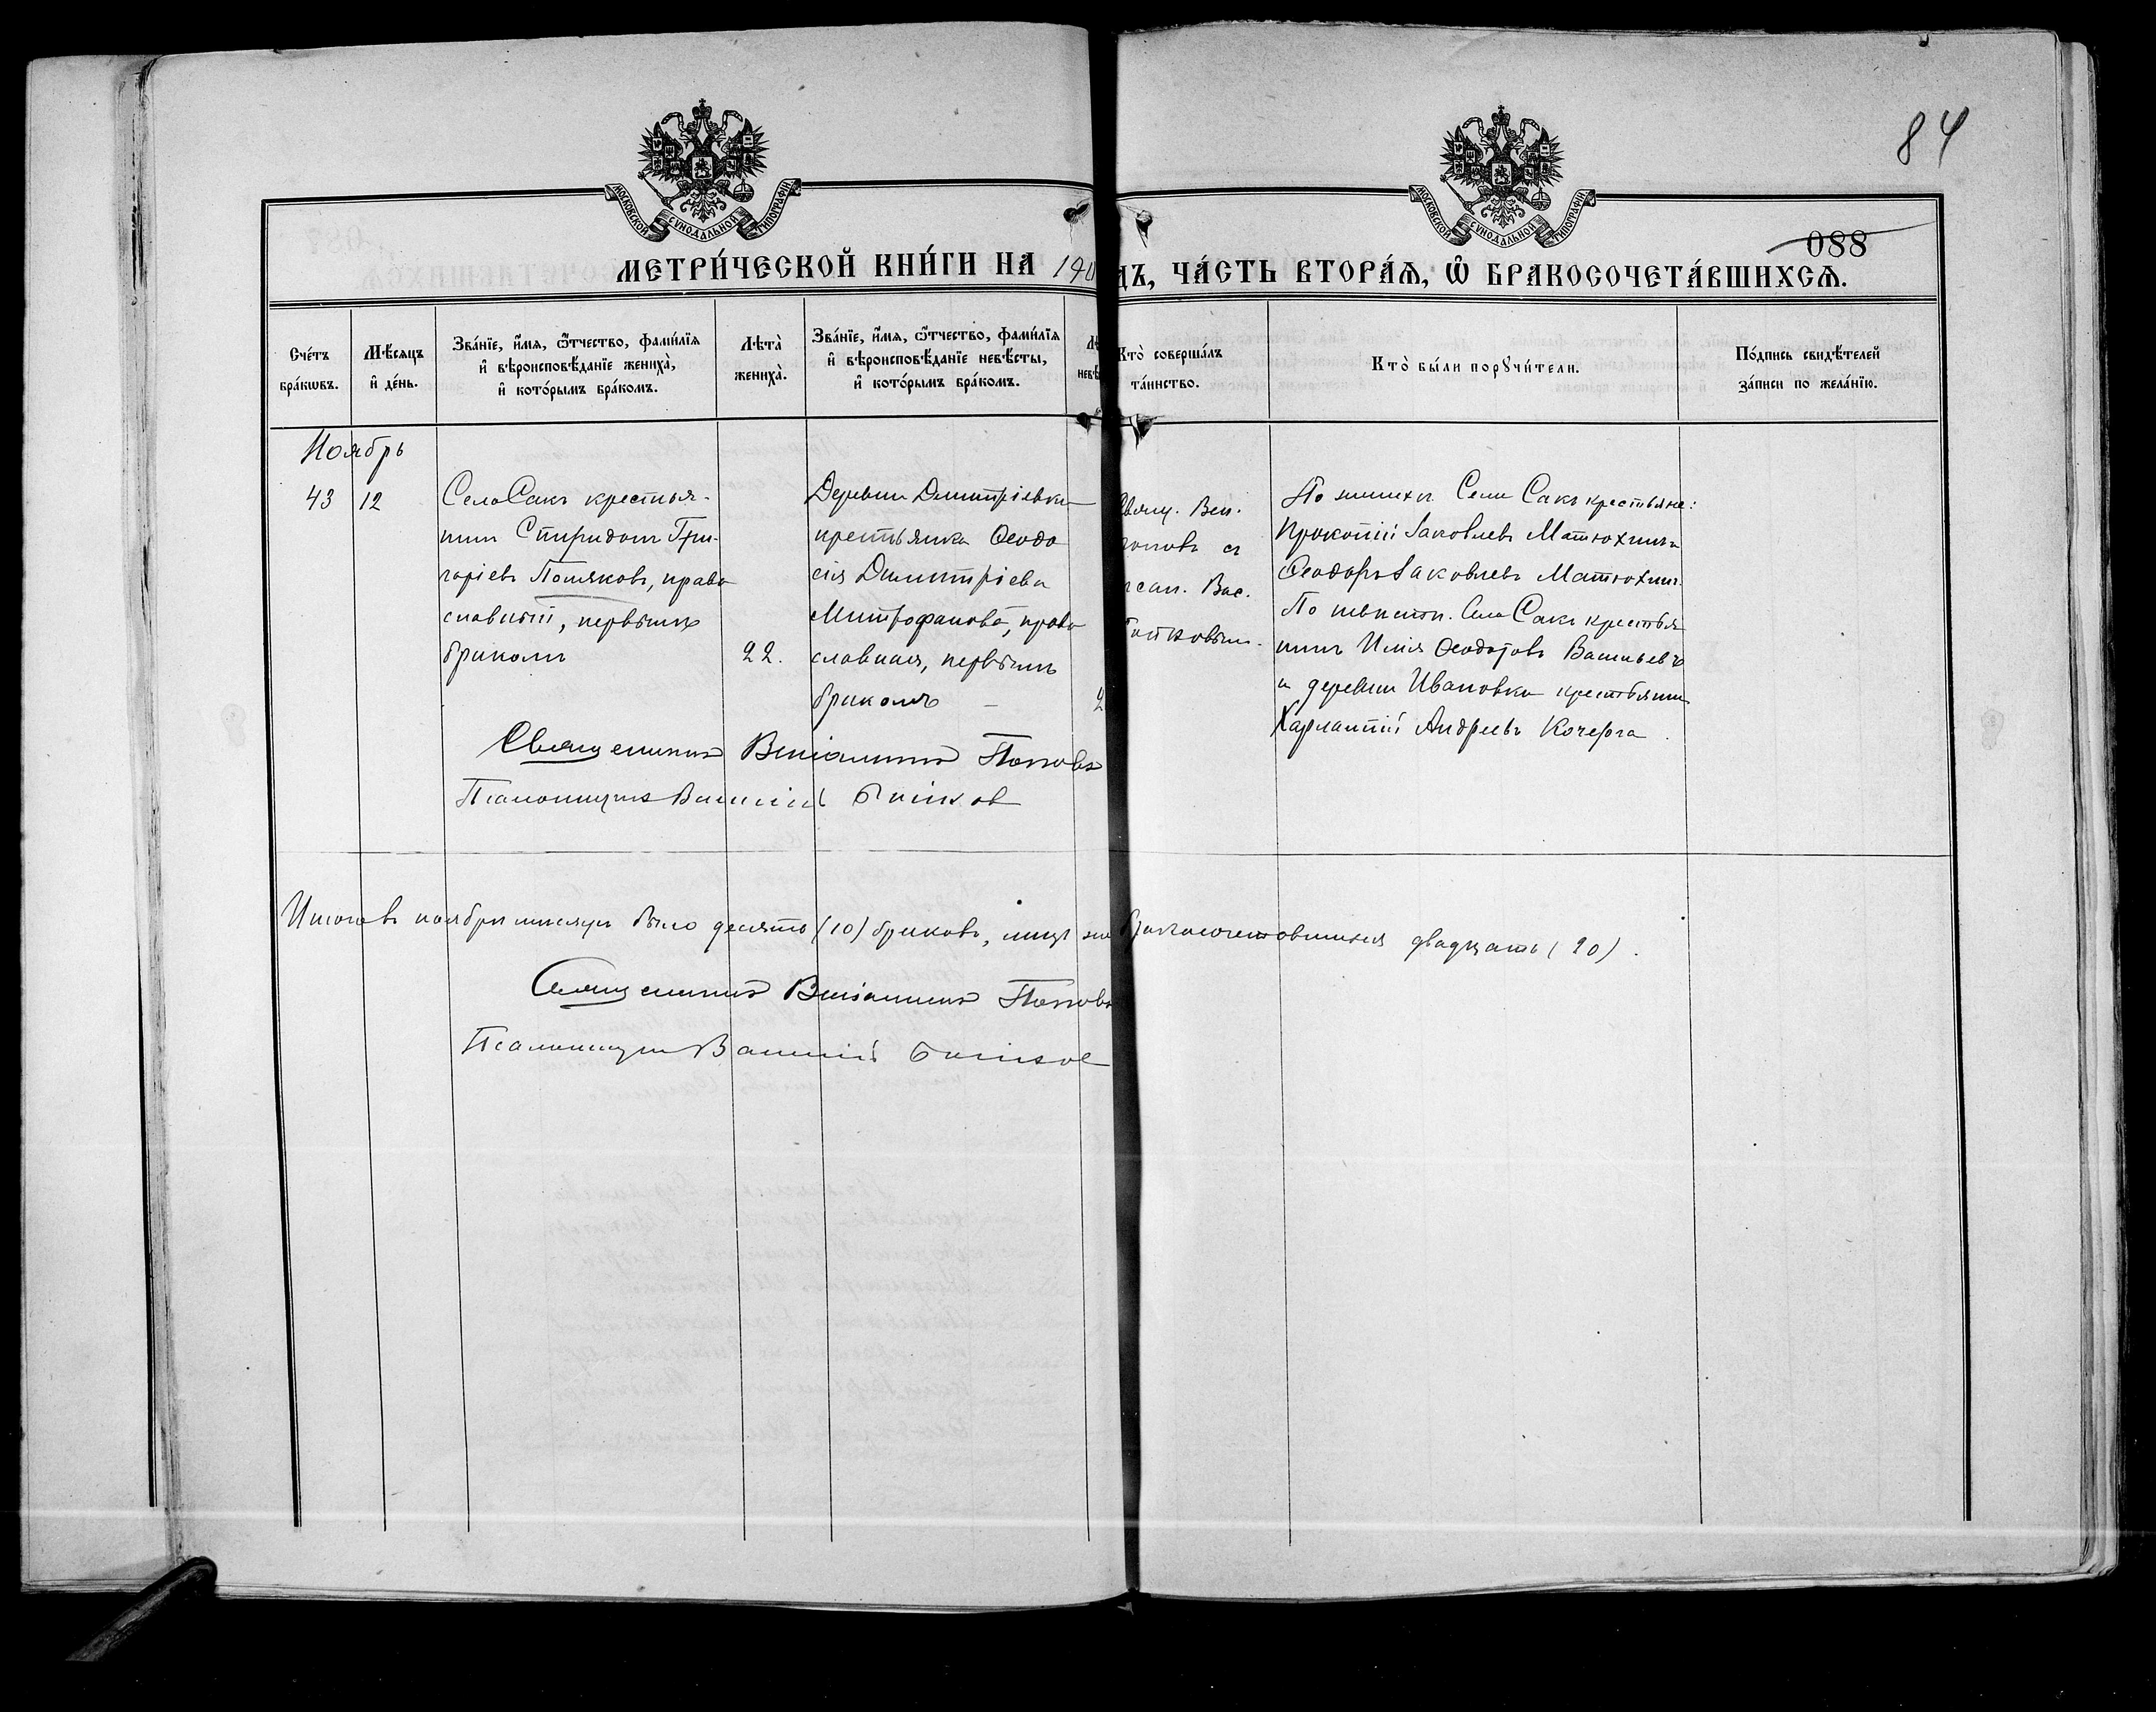 84
МОСКОВСКОЙ СѴНОДАЛЬНОЙ ТИПОГРАФІИ
МОСКОВСКОЙ СѴНОДАЛЬНОЙ ТИПОГРАФІИ
088
МЕТРИ́ЧЕСКОЙ КНИ́ГИ НА 190
ДЪ, ЧА́СТЬ ВТОРА́Ѧ, Ѽ БРАКОСОЧЕТА́ВШИХСѦ.
Сче́тъ
бра́кѡвъ.
Мѣ́сѧцъ
и҆ де́нь.
Зва́нїе, и҆́мѧ, ѻ҆́тчество, фами́лїѧ
и҆ вѣроисповѣ́данїе жениха̀,
и҆ кото́рымъ бра́комъ.
Лѣта̀
жениха̀.
Зва́нїе, и҆́мѧ, ѻ҆́тчество, фами́лїѧ
и҆ вѣроисповѣ́данїе невѣ́сты,
и҆ кото́рымъ бра́комъ.
Кто̀ соверша́лъ
та́инство.
Кто̀ бы́ли порꙋчи́тели.
По́дпись свидѣ́телей
за́писи по жела́нїю.
Ноябрь
43
12
Села Сакъ крестья-
нинъ Спиридонъ Гри-
горіевъ Поляковъ, право
славный, первымъ
бракомъ
22.
Деревни Димитріевки
крестьянка Ѳеодо
сія Димитріева
Митрофанова, право
славная, первымъ
бракомъ
2
Свящ. Вен.
Поповъ съ
псал. Вас.
По женихѣ: Села Сакъ крестьяне:
Прокопій Іаковлевъ Матюхинъ и
Ѳеодоръ Іаковлевъ Матюхинъ.
По невѣстѣ: Села Сакъ крестья
нинъ Илія Ѳеодотовъ Васильевъ
и деревни Ивановки крестьянинъ
Харлампій Андреевъ Кочерга.
Священникъ Веніаминъ Поповъ
Псаломщикъ Василій
Итого въ ноябрѣ мѣсяцѣ было десять (10) браковъ, лицъ же бракосочетавшихся двадцать (20).
Священникъ Веніаминъ Поповъ
Псаломщикъ Василій